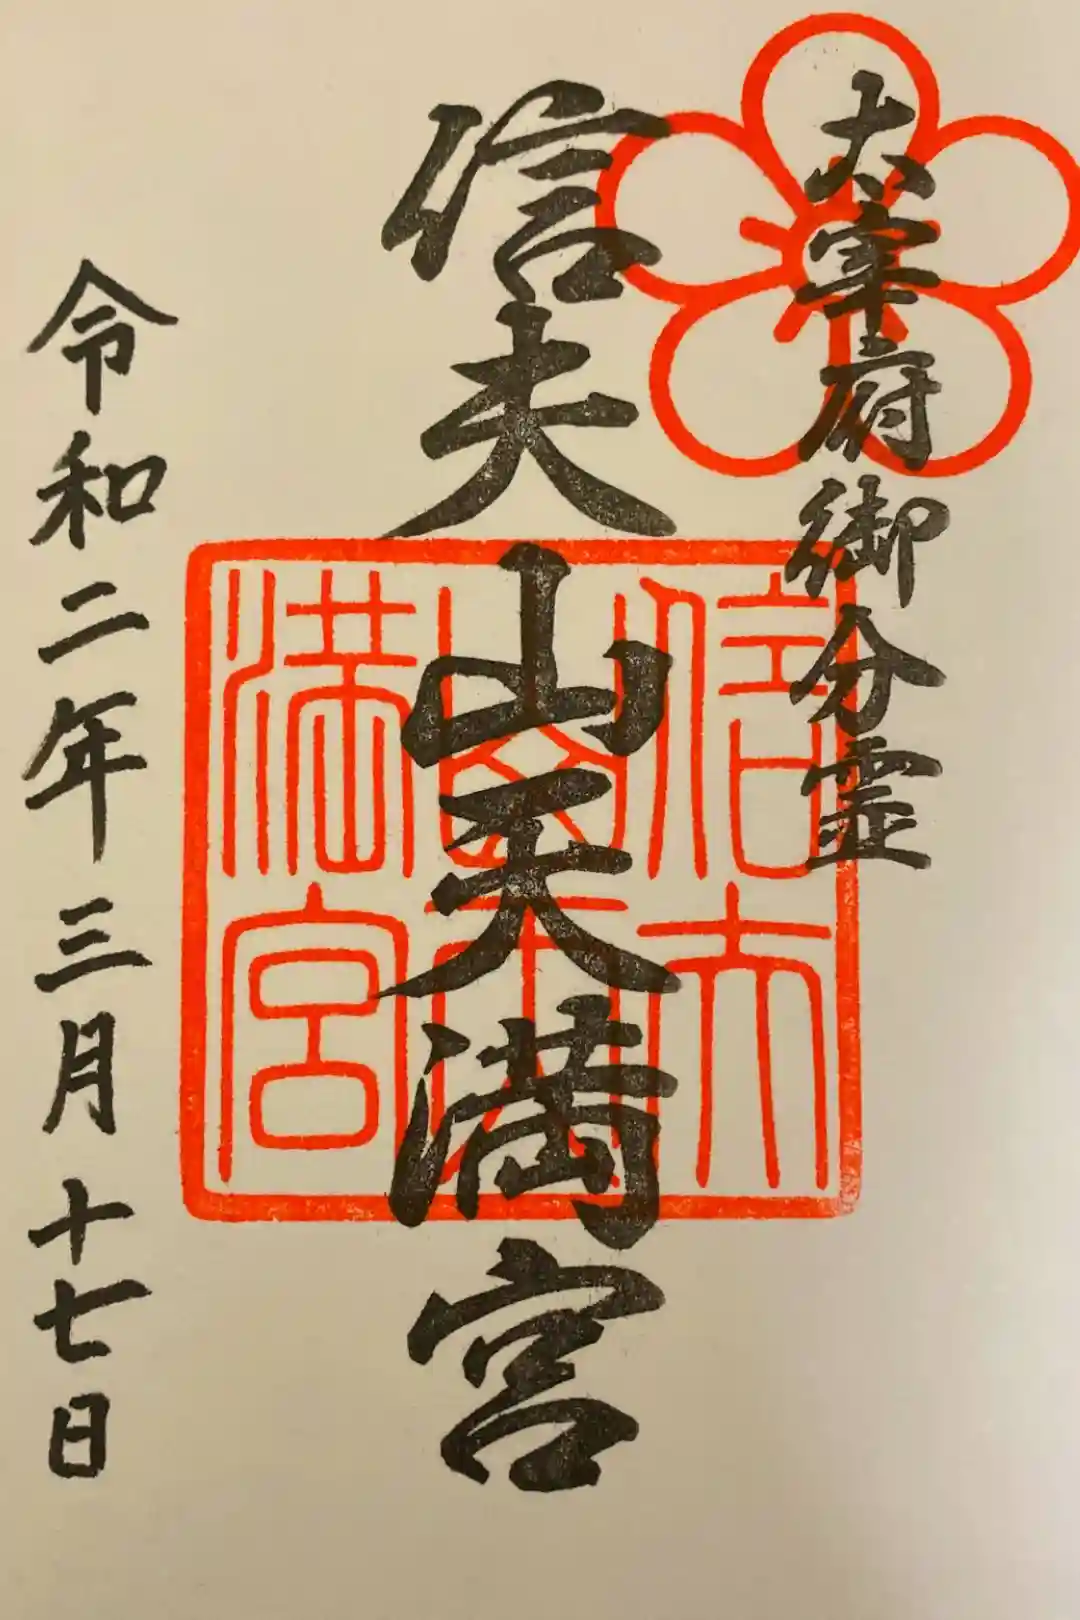 太宰府御分霊
信夫山天満宮
信夫
山天
満宮
令和二年三月十七日